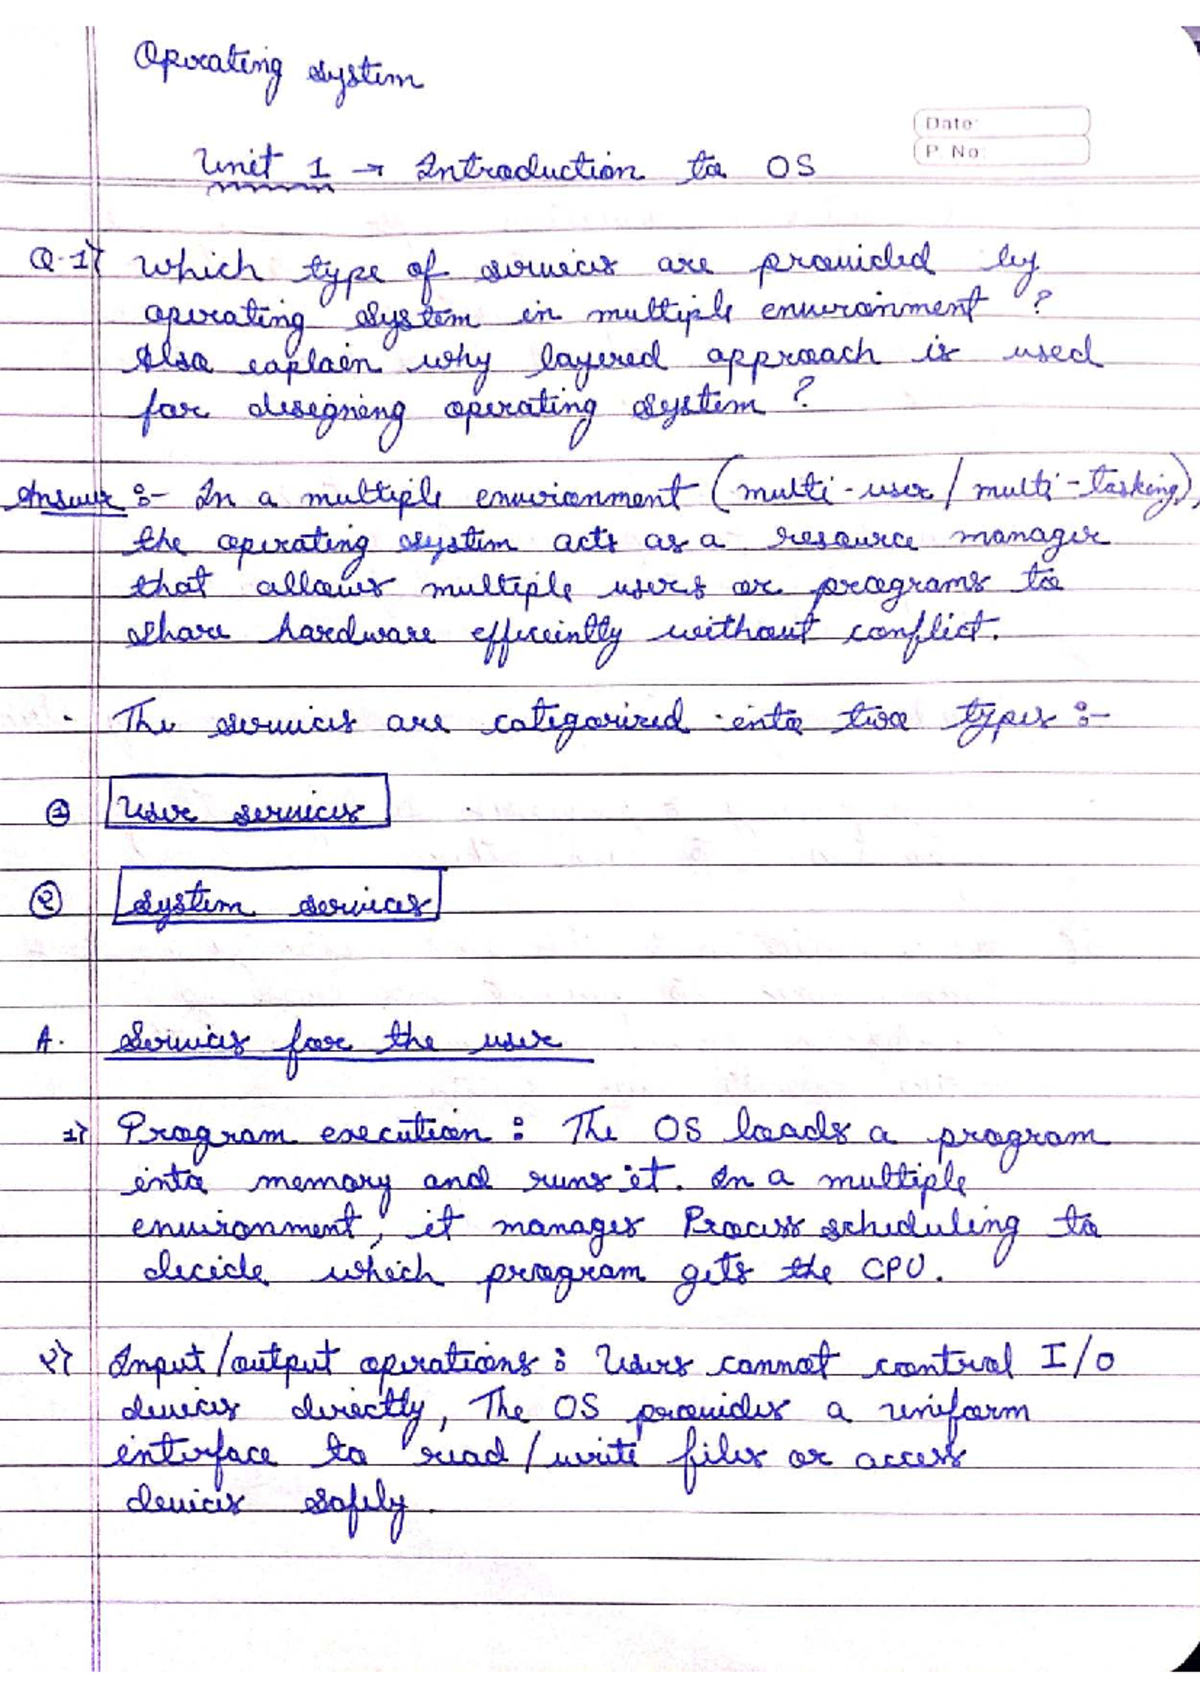 Operating system
Date:
P. No:
Unit 1 → Introduction to OS
Q.1) Which type of services are provided by
operating system in multiple environment ?
Also explain why layered approach is used
for designing operating system ?
Answer :- In a multiple environment (multi-user/multi-tasking),
the operating system acts as a resource manager
that allows multiple users or programs to
share hardware efficeintly without conflict.
. The services are categorized into two types :-
① User services
② System services
A. Services for the user
1) Program execution : The OS loads a program
into memory and runs it. In a multiple
environment, it manages Process scheduling to
decide which program gets the CPU.
2) Input/output operations : Users cannot control I/O
devices directly, The OS provides a uniform
interface to read/write files or access
devices safely.